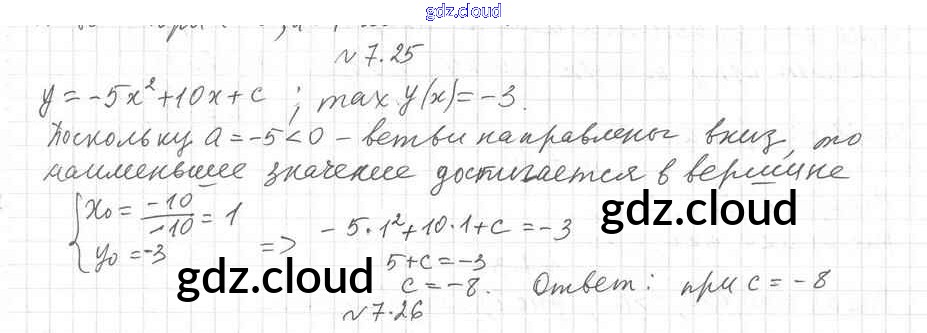 gdz.cloud
№ 7.25
y = -5x² + 10x + c ; max y(x) = -3.
Поскольку a = -5 < 0 - ветви направлены вниз, то
наименьшее значение достигается в вершине
{ x₀ = -10/-10 = 1
y₀ = -3 => -5·1² + 10·1 + c = -3
5 + c = -3
c = -8. Ответ: при c = -8
gdz.cloud
gdz.cloud
№ 7.26